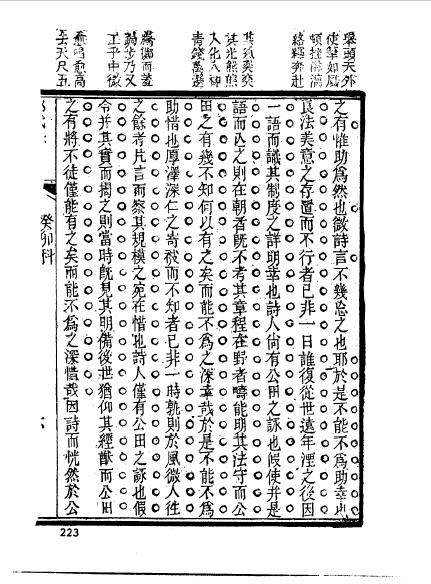 舉頭天外
使筆如風
頓挫淋漓
絡繹奔赴
其致奕奕
其光熊熊
入神
青錢萬選
鳴愈高
去天尺五
之有惟助為然也微詩言不幾忘之也耶於是不能不為助幸也
良法美意之存置而不行者已非一日誰復從世遠年湮之後因
一語而議其制度之詳明幸也詩人尚有公田之詠也假使并是
語而亡之則在朝者旣不考其章程在野者疇能明其法守而公
田之有幾不知何以有之矣而能不為之深幸哉於是不能不為
助惜也厚澤深仁之寄被而不知者已非一時孰則於風微人往
之餘考片言而察其規模之宛在惜也詩人僅有公田之詠也假
令并其實而獨之則當時旣見其明備後世猶仰其經猷而公田
之有將不徒僅能有之矣而能不為之深惜哉因詩而恍然於公
癸卯科
223